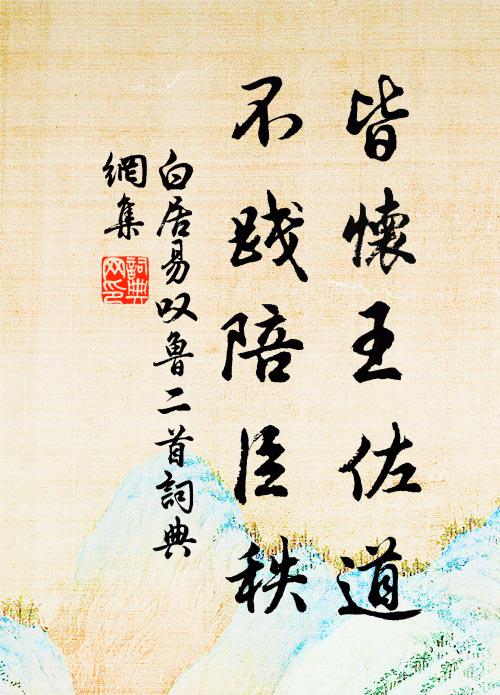 皆懷王佐道
不踐陪臣秩
白居易叹魯二首詞典
網集
詞典
网印